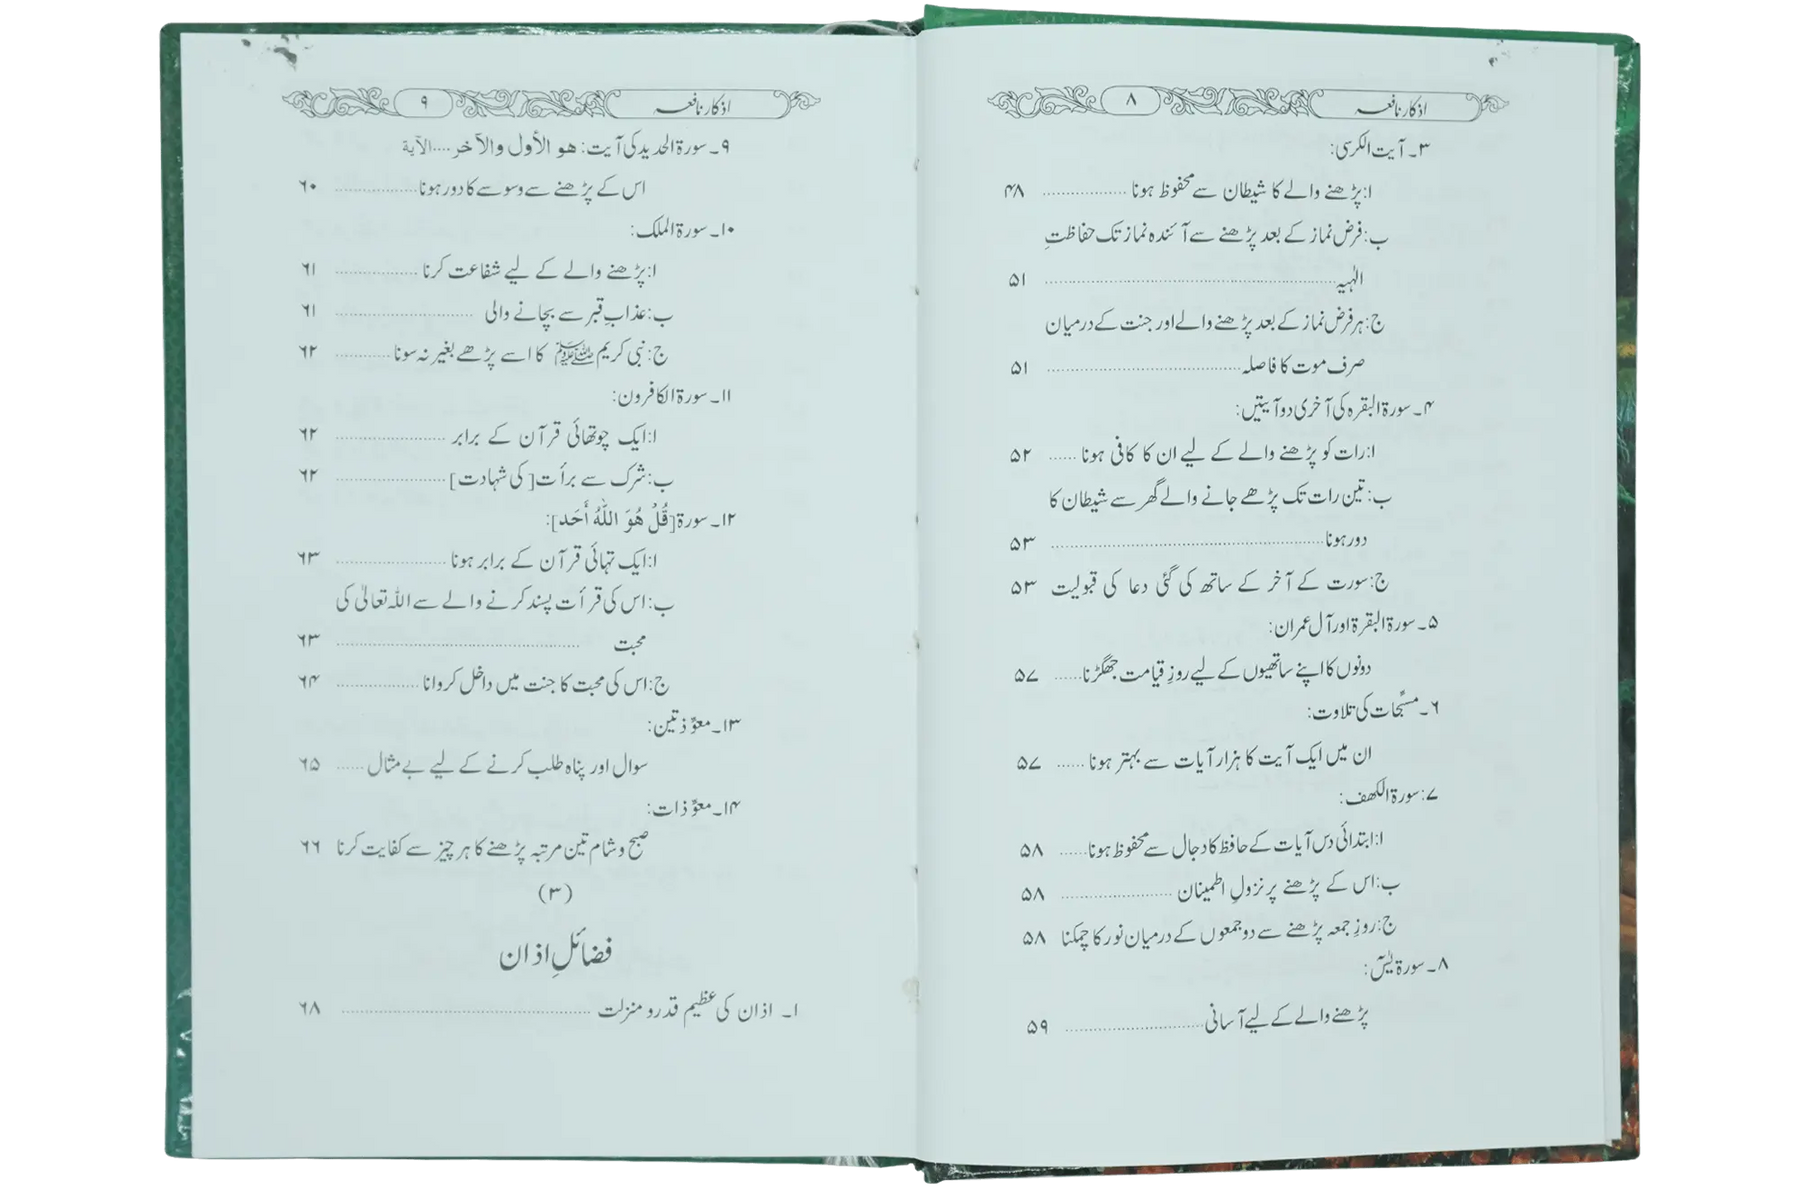 اذکار نافعہ ۸
۳۔ آیت الکرسی:
ا: پڑھنے والے کا شیطان سے محفوظ ہونا .................. ۴۸
ب: فرض نماز کے بعد پڑھنے سے آئندہ نماز تک حفاظتِ
الٰہیہ .................. ۵۱
ج: ہر فرض نماز کے بعد پڑھنے والے اور جنت کے درمیان
صرف موت کا فاصلہ .................. ۵۱
۴۔ سورۃ البقرہ کی آخری دو آیتیں:
ا: رات کو پڑھنے والے کے لیے ان کا کافی ہونا ...... ۵۲
ب: تین رات تک پڑھے جانے والے گھر سے شیطان کا
دور ہونا .................. ۵۳
ج: سورت کے آخر کے ساتھ کی گئی دعا کی قبولیت ۵۳
۵۔ سورۃ البقرۃ اور آل عمران:
دونوں کا اپنے ساتھیوں کے لیے روزِ قیامت جھگڑنا ...... ۵۷
۶۔ مسبِّحات کی تلاوت:
ان میں ایک آیت کا ہزار آیات سے بہتر ہونا ...... ۵۷
۷: سورۃ الکھف:
ا: ابتدائی دس آیات کے حافظ کا دجال سے محفوظ ہونا ...... ۵۸
ب: اس کے پڑھنے پر نزولِ اطمینان .................. ۵۸
ج: روزِ جمعہ پڑھنے سے دو جمعوں کے درمیان نور کا چمکنا ۵۸
۸۔ سورۃ یٰسٓ:
پڑھنے والے کے لیے آسانی .................. ۵۹
اذکار نافعہ ۹
۹۔ سورۃ الحدید کی آیت: هو الأول والآخر....الآية
اس کے پڑھنے سے وسوسے کا دور ہونا .................. ۶۰
۱۰۔ سورۃ الملک:
ا: پڑھنے والے کے لیے شفاعت کرنا .................. ۶۱
ب: عذابِ قبر سے بچانے والی .................. ۶۱
ج: نبی کریم ﷺ کا اسے پڑھے بغیر نہ سونا .................. ۶۲
۱۱۔ سورۃ الکافرون:
ا: ایک چوتھائی قرآن کے برابر .................. ۶۲
ب: شرک سے برأت [کی شہادت] .................. ۶۲
۱۲۔ سورۃ [قُلْ هُوَ اللّٰهُ أَحَد]:
ا: ایک تہائی قرآن کے برابر ہونا .................. ۶۳
ب: اس کی قرأت پسند کرنے والے سے اللہ تعالیٰ کی
محبت .................. ۶۳
ج: اس کی محبت کا جنت میں داخل کروانا .................. ۶۴
۱۳۔ معوِّذتین:
سوال اور پناہ طلب کرنے کے لیے بے مثال ...... ۶۵
۱۴۔ معوِّذات:
صبح و شام تین مرتبہ پڑھنے کا ہر چیز سے کفایت کرنا ۶۶
(۳)
فضائلِ اذان
۱۔ اذان کی عظیم قدر و منزلت .................. ۶۸